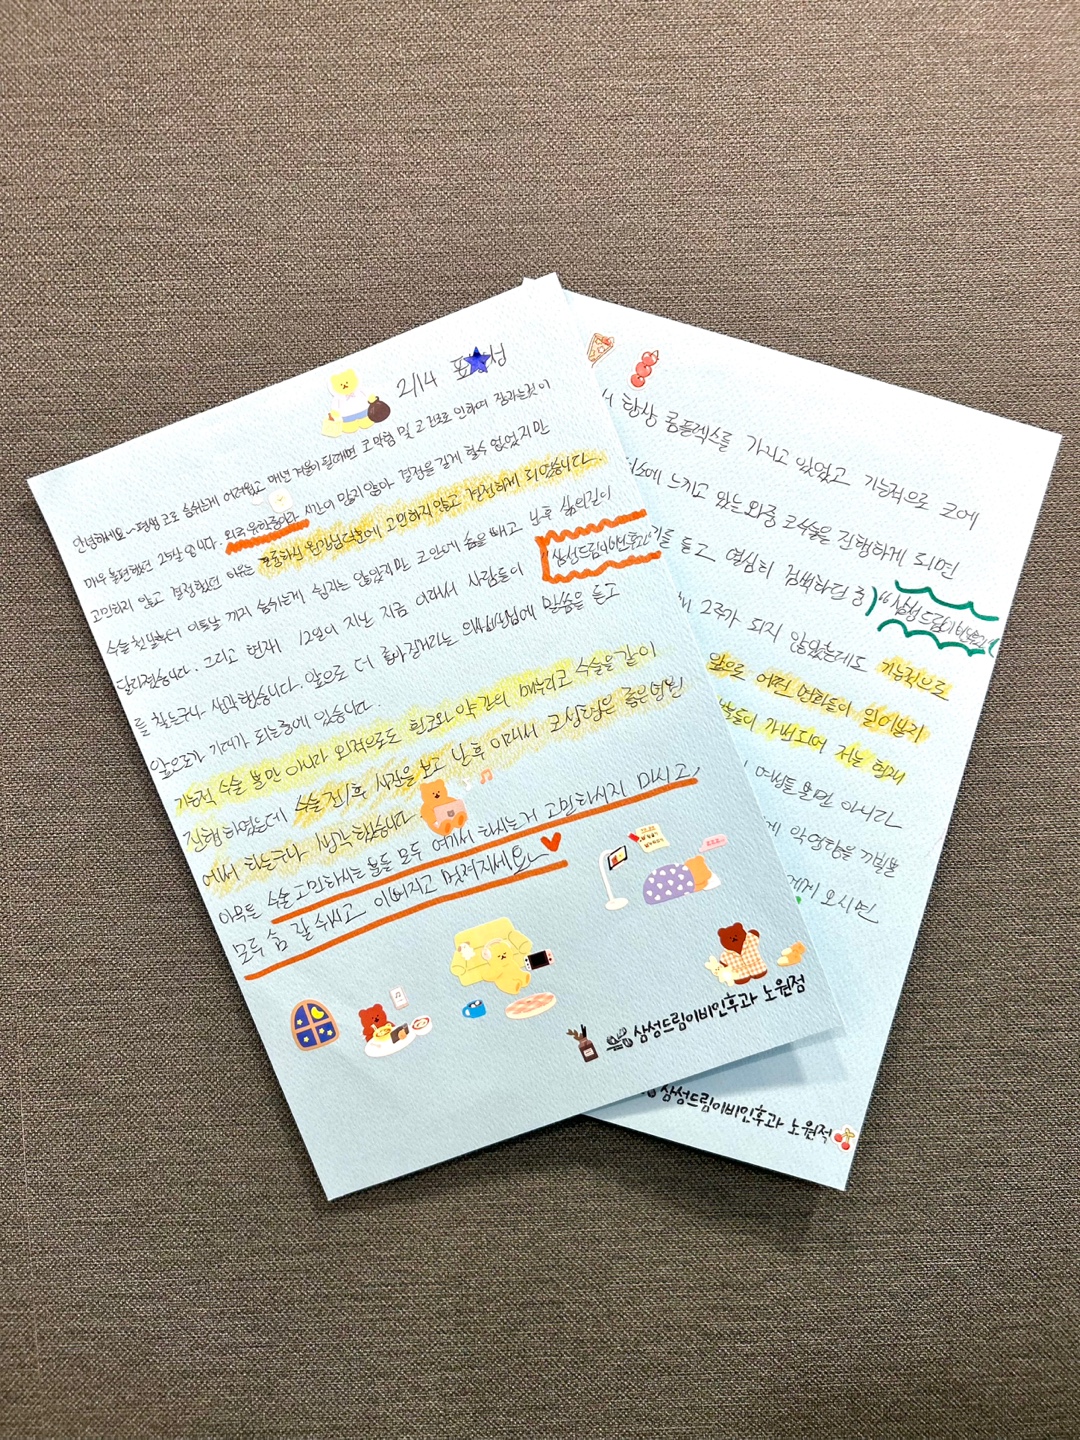 2/14 표 성
안녕하세요~ 평생 코로 숨쉬는게 어려웠고 매년 겨울이 될때면 코막힘 및 고로 인하여 잠자는것이
매우 불편했던 고객 입니다. 외국 유학중이라 시간이 많지않아 결정을 길게 할수 없었지만
고민하지 않고 결정했던 이유는 훌륭하신 원장님덕분에 고민하지않고 결정하게 되었습니다.
수술 첫날부터 이튿날 까지 숨쉬는게 쉽지는 않았지만 코안에 솜을 빼고 난후 삶의질이
달라졌습니다. 그리고 현재 12일이 지난 지금 이래서 사람들이 "삼성드림이비인후과"
를 찾는구나 생각했습니다. 앞으로 더 좋아질거라는 의사선생님에 말씀을 듣고
앞으로가 기대가 되는중에 있습니다.
기능적 수술 뿐만 아니라 외적으로도 휜코와 약간의 매부리코 수술을 같이
진행 하였는데 수술 전/후 사진을 보고 난후 이래서 코성형은 좋은병원
에서 하는구나 생각 하였습니다
아무튼 수술 고민하시는 분들 모두 여기서 하시는거 고민하시지 마시고,
모두 숨 잘 쉬시고 이뻐지고 멋져지세요~
삼성드림이비인후과 노원점
항상 콤플렉스를 가지고 있었고 기능적으로 코에
느끼고 있는 와중 코수술을 진행하게 되면
기를 듣고 열심히 검색하던 중 "삼성드림이비인후과"
2주가 되지 않았는데도 기능적으로
앞으로 어떤 변화들이 일어날지
들이 가변되어 저는 현재
여성들 뿐만 아니라
악영향을 끼칠
에게 오시면
삼성드림이비인후과 노원점